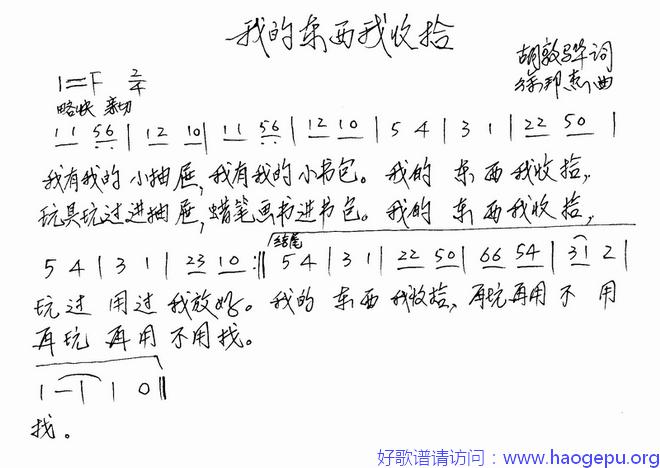 我的东西我收拾
胡敦骅词
1=F 2/4
徐邦杰曲
略快 亲切
1 1 5 6 | 1 2 1 0 | 1 1 5 6 | 1 2 1 0 | 5 4 | 3 1 | 2 2 5 0 |
我有我的 小抽屉,我有我的小书包。我的 东西我收拾,
玩具玩过进抽屉,蜡笔画书进书包。我的 东西我收拾,
结尾
5 4 | 3 1 | 2 3 1 0 :‖ 5 4 | 3 1 | 2 2 5 0 | 6 6 5 4 | 3 1 2 |
玩过 用过我放好。我的 东西我收拾,再玩再用不 用
再玩 再用 不用找。
1 - | 1 0 ‖
找。
好歌谱请访问:www.haogepu.org